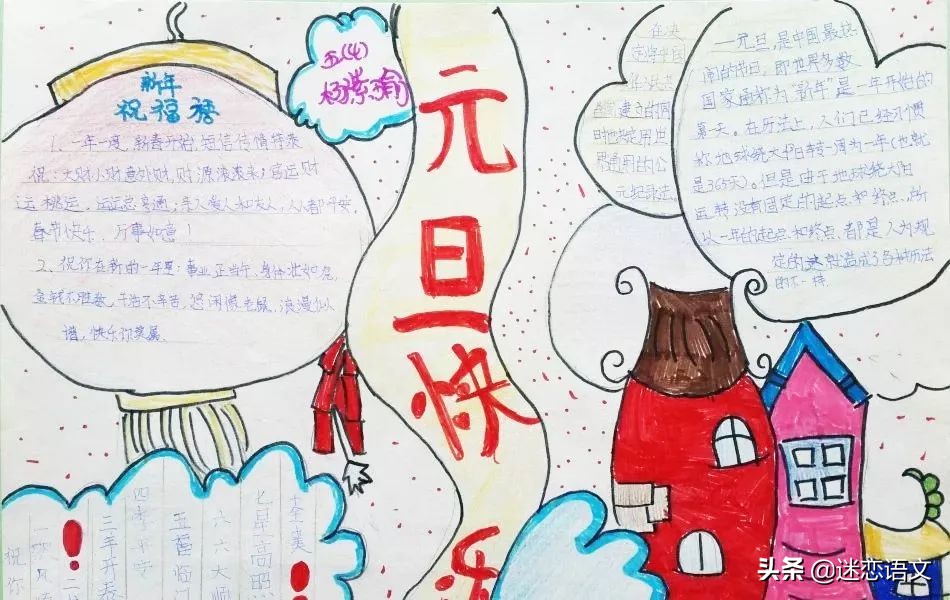 新年
祝福语
1、一年一度,新春开始,短信传情
祝:大财小财意外财,财源滚滚来;官运财
运桃运,运运亨通;亲人爱人和友人,人人都平安,
春节快乐,万事如意!
2、祝你在新的一年里:事业正当午,身体壮如虎,
金钱不胜数,干活不辛苦,悠闲像老鼠,浪漫似
谱,快乐你莫属.
五(4)
元旦快乐
在
国
建立的同
时也决定用世
界通用的公
元纪录法
一元旦,是中国最热
闹的节日,即世界多数
国家通称为“新年”是一年开始的
第一天。在历法上,人们已经习惯
称地球绕太阳转一周为一年(也就
是365天)。但是由于地球绕太阳
运转没有固定的起点和终点,所
以一年的起点和终点,都是人为规
定的,就造成了各种历法
的不一样.
祝你
一帆风
二
三羊开泰
四季平安
五福临门
六六大顺
七星高照
十全十美
头条 @迷恋语文